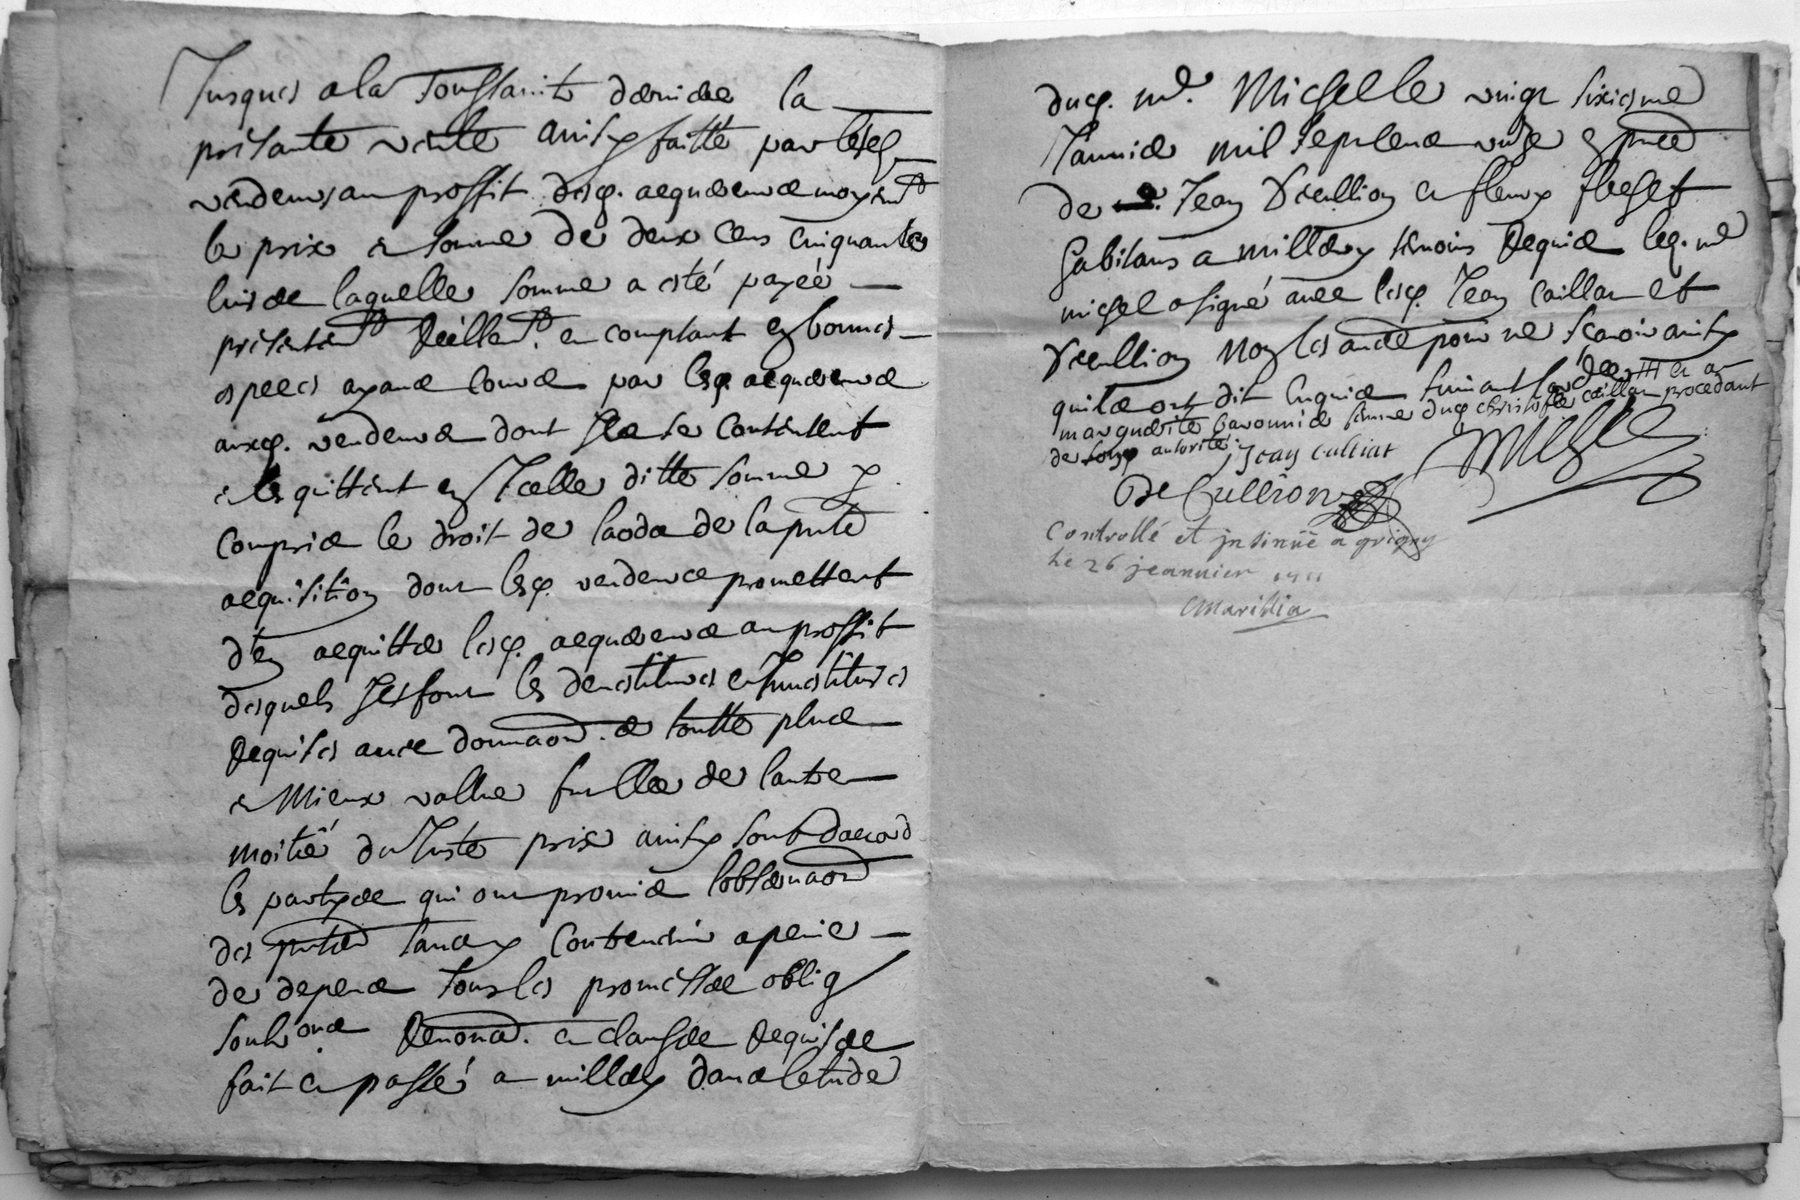 Jusques a la Toussaint derniere la
presante vente ainsy faitte par lesd
vendeurs au proffit desq. acquereurs moyent
le prix et somme de deux cens cinquante
livres laquelle somme a esté payée
presentemt reellemt. et comptant en bonnes
especes ayant cours par lesq. acquereurs
auxq. vendeurs dont Ils se contentent
et les quittent en Icelle ditte somme y
compris le droit de laods de la pnte
acquisition dont lesq. vendeurs promettent
d'en acquitter lesq. acquereurs au proffit
desquels Ils font les devestitures et Investitures
requises avec donnaon. de toutte plus
et Mieux vallue fut elle de lautre
moitié du Juste prix ainsy sont daccord
les parties qui ont promis lobservaon
des pntes sans y contrevenir a peine
de depens sous les promesses oblig
soub. ons renonc. et clauses requises
fait et passé a millery dans letude
dud. me. Michelle vingt sixieme
Janvier mil sept cens unze en pnce
de Jean Vceullion et fleury
habitans a millery temoins requis leq. me
michel a signé avec lesq. Jean caillat et
Vceullion Non les autres pour ne scavoir ainsy
quils ont dit Enquis suivant lord et a
marguerite femme dud christofle caillat procedant
de son autorité. Jean calliat
De Cullion Michelle
Controllé et insinué a grigny
le 26 jeanvier 1711